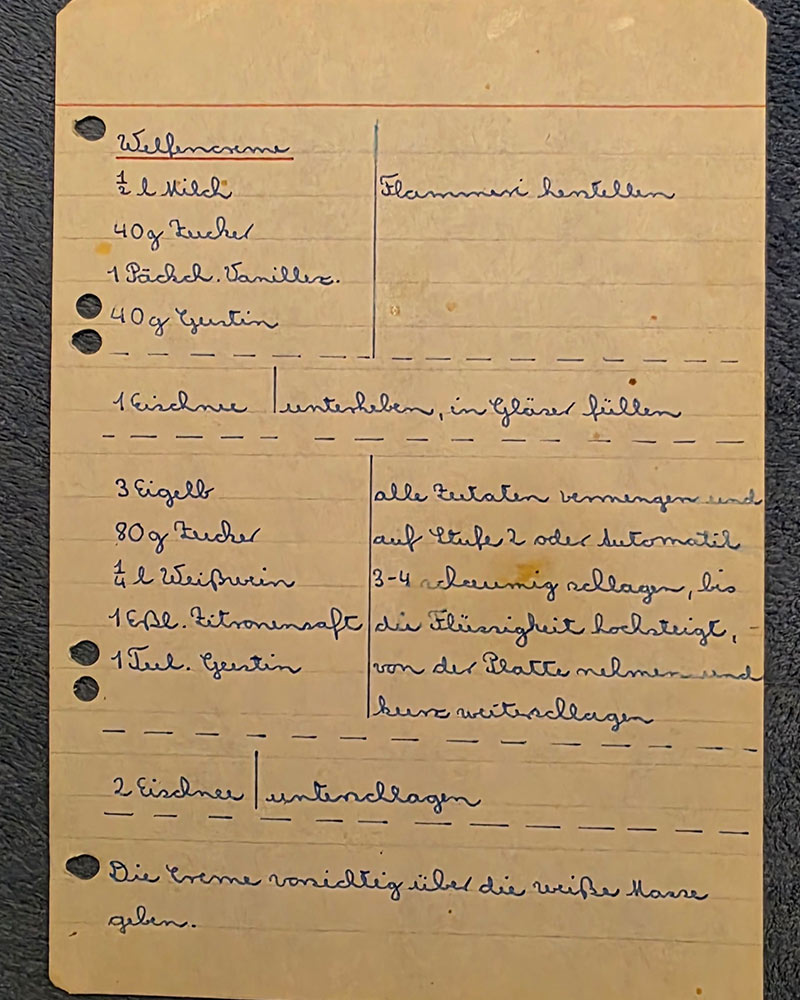 Welfencreme
½ l Milch
Flammeri herstellen
40g Zucker
1 Päckch. Vanillez.
40g Gustin
1 Eischnee unterheben, in Gläser füllen
3 Eigelb
alle Zutaten vermengen und
80g Zucker
auf Stufe 2 oder Automatik
¼ l Weißwein
3-4 schaumig schlagen, bis
1 Eßl. Zitronensaft
die Flüssigkeit hochsteigt,
1 Teel. Gustin
von der Platte nehmen und
kurz weiterschlagen
2 Eischnee unterschlagen
Die Creme vorsichtig über die weiße Masse
geben.